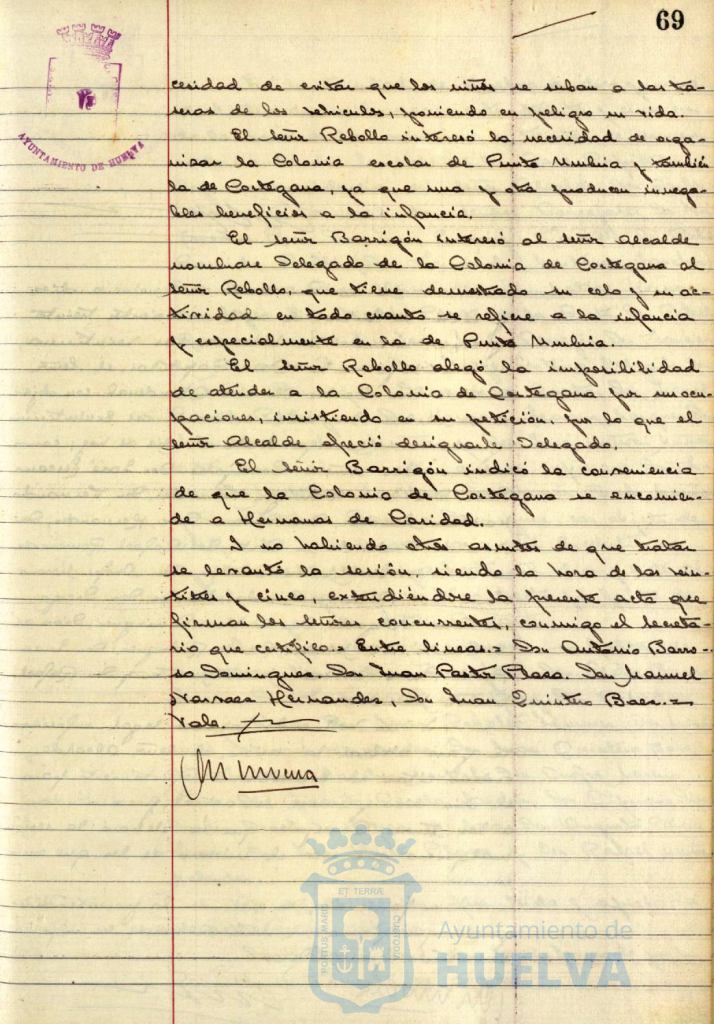 69
AYUNTAMIENTO DE HUELVA
cesidad de evitar que los niños se suban a las tra-
seras de los vehículos, poniendo en peligro su vida.
El señor Rebollo interesó la necesidad de orga-
nizar la Colonia escolar de Punta Umbria y también
la de Cortegana, ya que una y otra producen innega-
bles beneficios a la infancia.
El señor Barrigón interesó al señor Alcalde
nombrase Delegado de la Colonia de Cortegana al
señor Rebollo, que tiene demostrado su celo y su ac-
tividad en todo cuanto se refiere a la infancia
y especialmente en la de Punta Umbria.
El señor Rebollo alegó la imposibilidad
de atender a la Colonia de Cortegana por sus ocu-
paciones, insistiendo en su petición, por lo que el
señor Alcalde ofreció designarle Delegado.
El señor Barrigón indicó la conveniencia
de que la Colonia de Cortegana se encomien-
de a Hermanas de Caridad.
I no habiendo otros asuntos de que tratar
se levantó la sesión, siendo la hora de las vein-
titres y cinco, extendiéndose la presente acta que
firman los señores concurrentes, conmigo el secreta-
rio que certifico.= Entre lineas.= Don Antonio Barro-
so Dominguez. Don Juan Pastor Plaza. Don Manuel
Narvaez Hernandez, Don Juan Quintero Baez.=
Vale.
ET TERRÆ
PORTUS MARIS
CUSTODIA
Ayuntamiento de
HUELVA